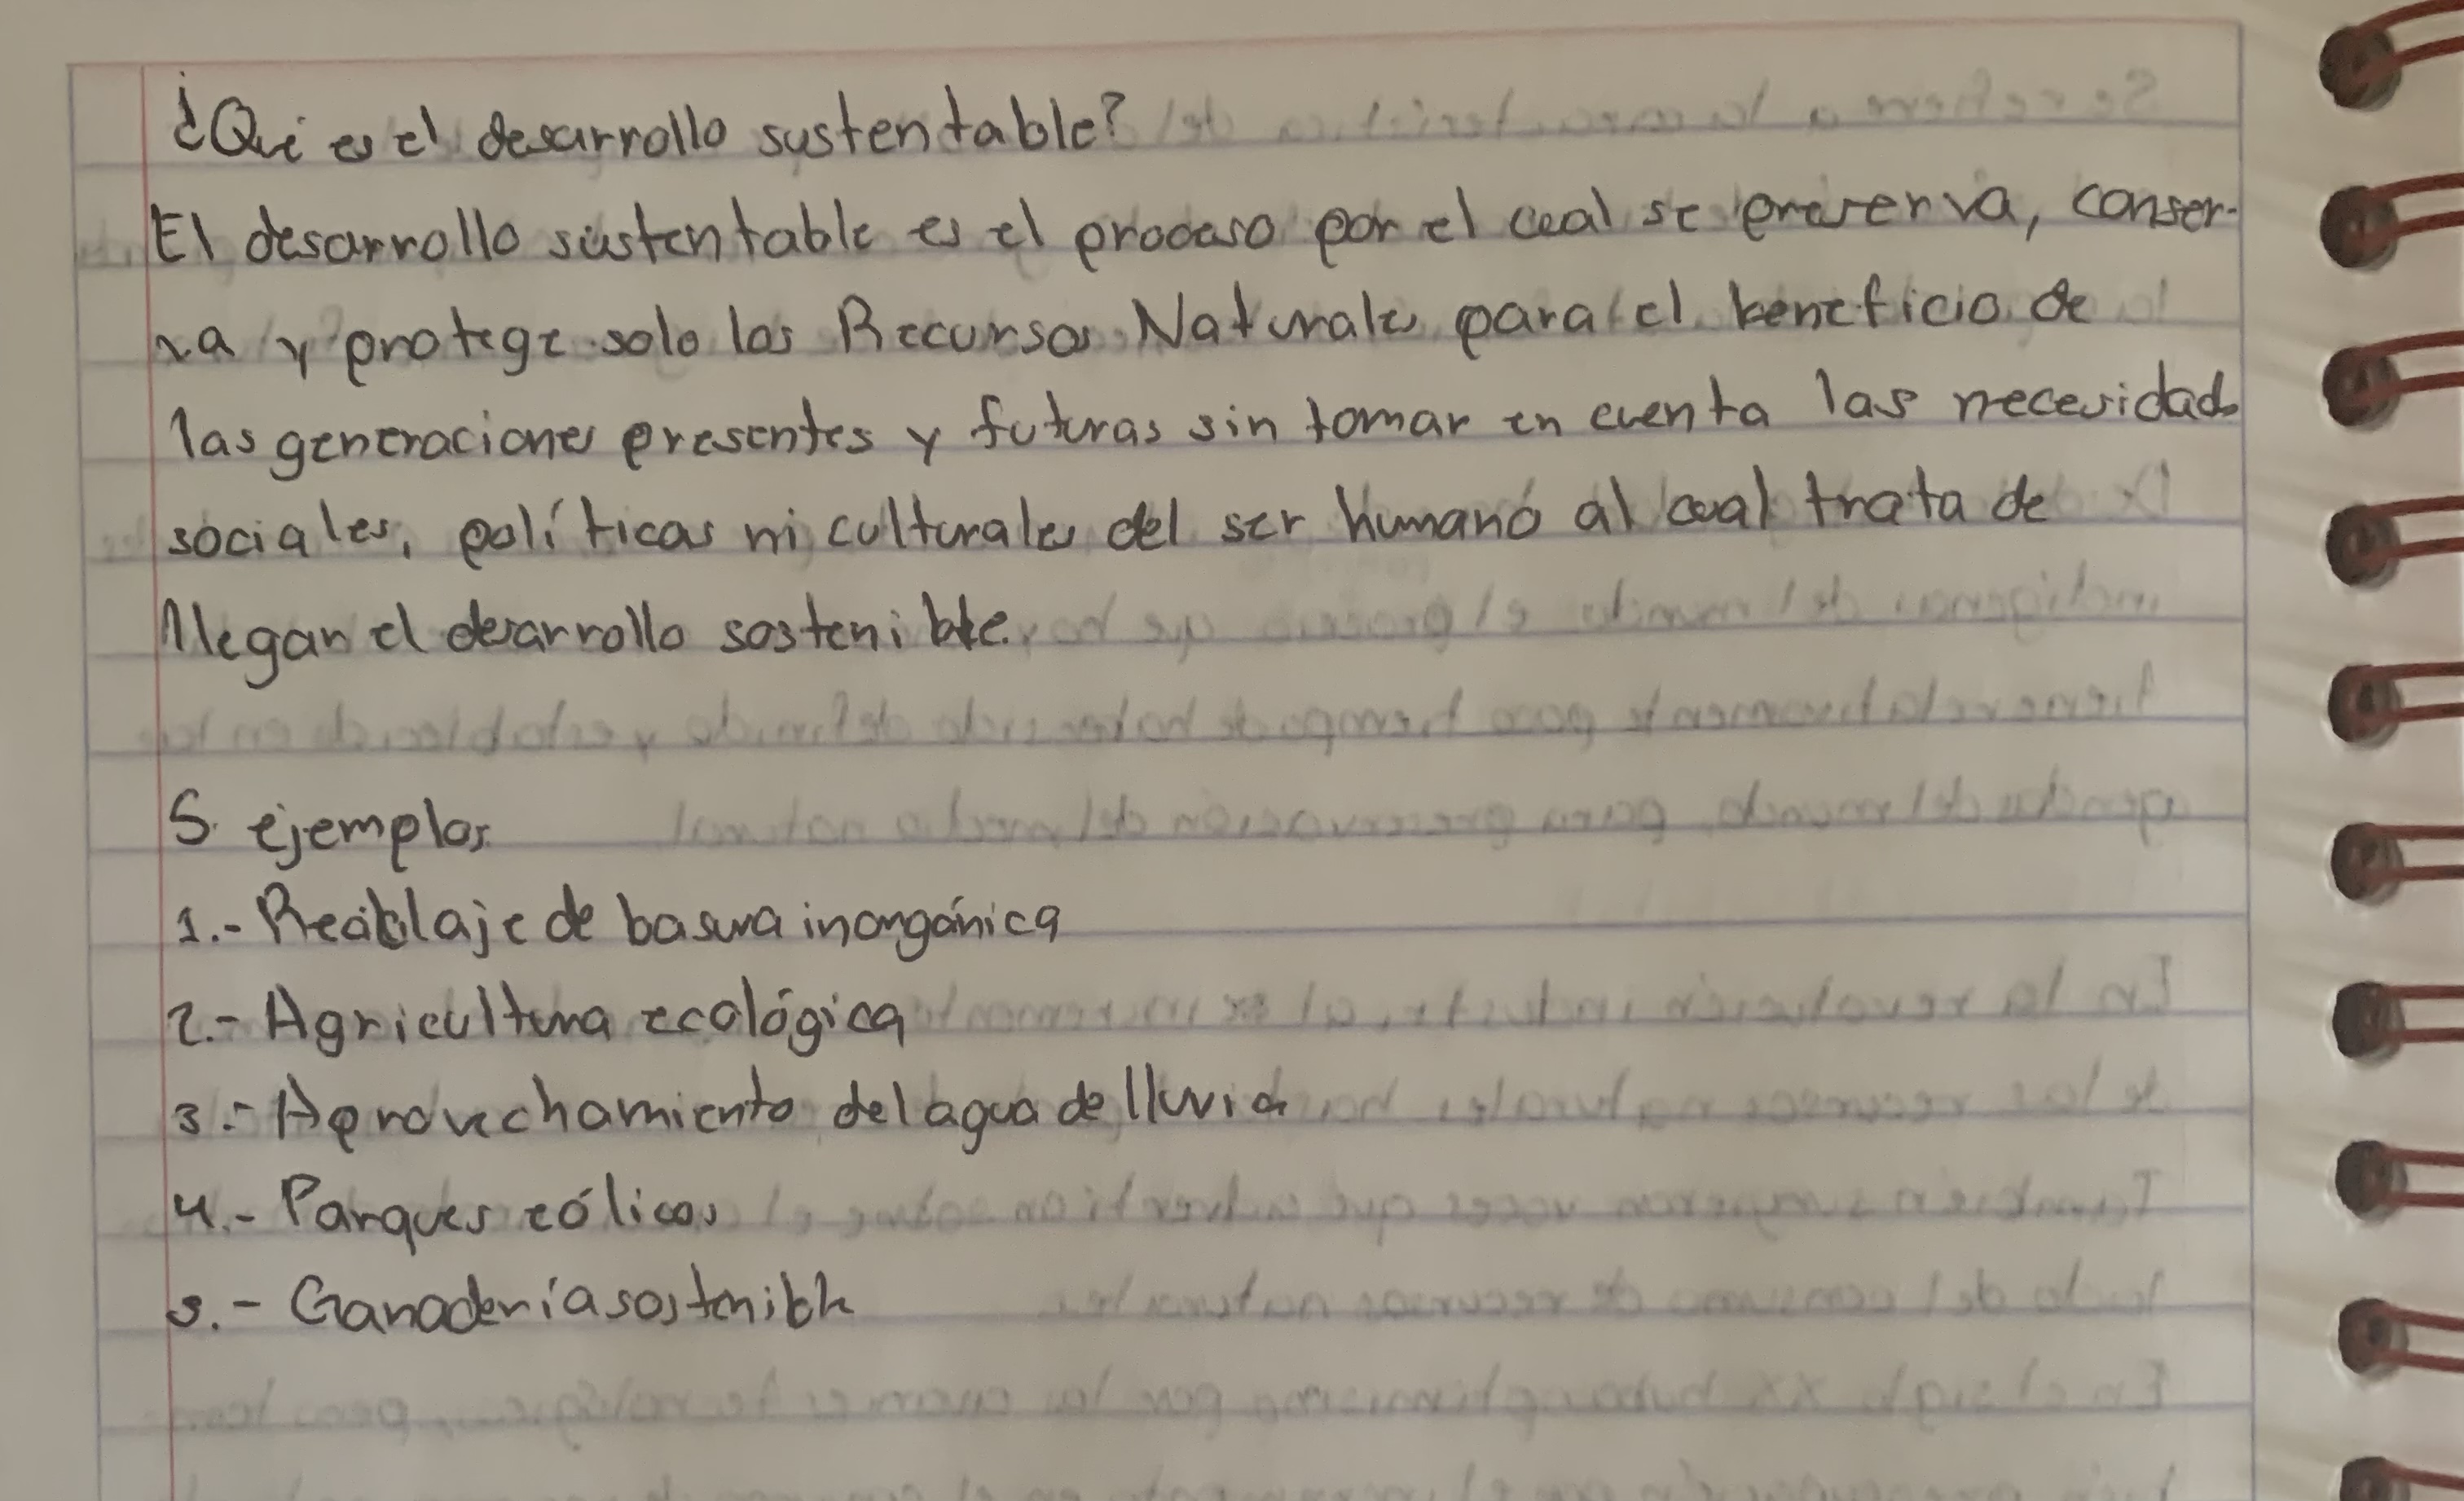 ¿Qué es el desarrollo sustentable?
El desarrollo sustentable es el proceso por el cual se preserva, conser-
va y protege solo los Recursos Naturales para el beneficio de
las generaciones presentes y futuras sin tomar en cuenta las necesidades
sociales, políticas ni culturales del ser humano al cual trata de
llegar el desarrollo sostenible.
5 ejemplos
1.- Reciclaje de basura inorgánica
2.- Agricultura ecológica
3.- Aprovechamiento del agua de lluvia
4.- Parques eólicos
5.- Ganadería sostenible